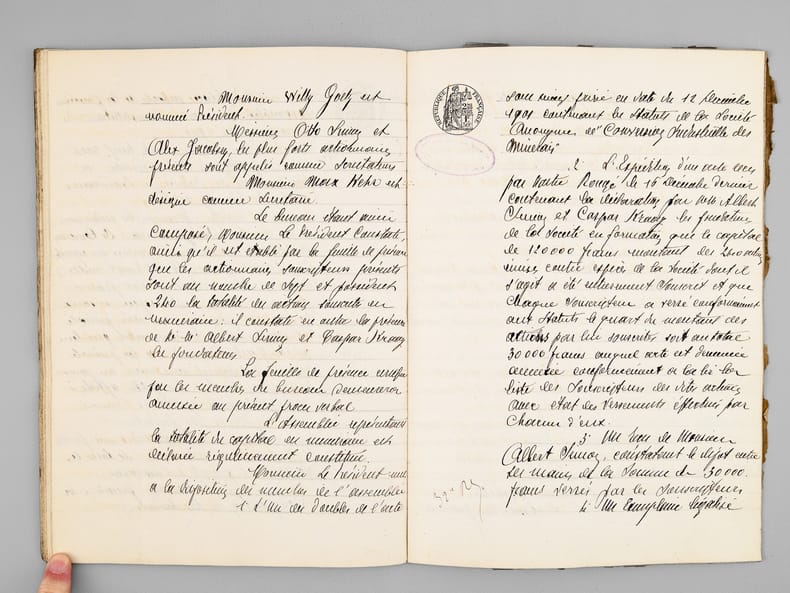 Monsieur Willy Goetz est
nommé Président.
Messieurs Otto Simon et
Alex Jacobsen, les plus forts actionnaires
présents sont appelés comme scrutateurs
Monsieur Max Hehr est
désigné comme secrétaire.
Le bureau étant ainsi
composé, Monsieur le Président constate,
ainsi qu'il est établi par la feuille de présence
que les actionnaires souscripteurs présents
sont au nombre de Sept et possèdent
240 la totalité des actions souscrites en
numéraire : il constate en outre la présence
de Albert Simon et Caspar
les fondateurs
La feuille de présence certifiée
par les membres du bureau demeurera
annexée au présent procès verbal
L'Assemblée représentant
la totalité du capital en numéraire est
déclarée régulièrement constituée.
Monsieur le Président met
a la disposition des membres de l'assemblée
1° L'un des doubles de l'acte
RÉPUBLIQUE FRANÇAISE
sous seing privé en date du 12 Décembre
1901 contenant les Statuts de la Société
Anonyme de "Conversion Industrielle des
Minerais"
2° L'Expédition d'un acte reçu
par Maitre le 16 Décembre dernier
contenant la déclaration par Albert
Simon et Caspar les fondateurs
de la Société en formation que le capital
de 120000 francs montant des 240 actions
émises contre espèces de la Société dont il
s'agit a été entièrement souscrit et que
chaque souscripteur a versé conformément
aux Statuts le quart du montant des
actions par lui souscrites soit au total
30000 francs auquel acte est demeurée
annexée conformément a la loi la
liste des Souscripteurs des dites actions
avec état des versements effectués par
chacun d'eux.
3° Un reçu de Monsieur
Albert Simon, constatant le dépôt entre
ses mains de la Somme de 30000
francs versés par les Souscripteurs
4° Un Exemplaire légalisé